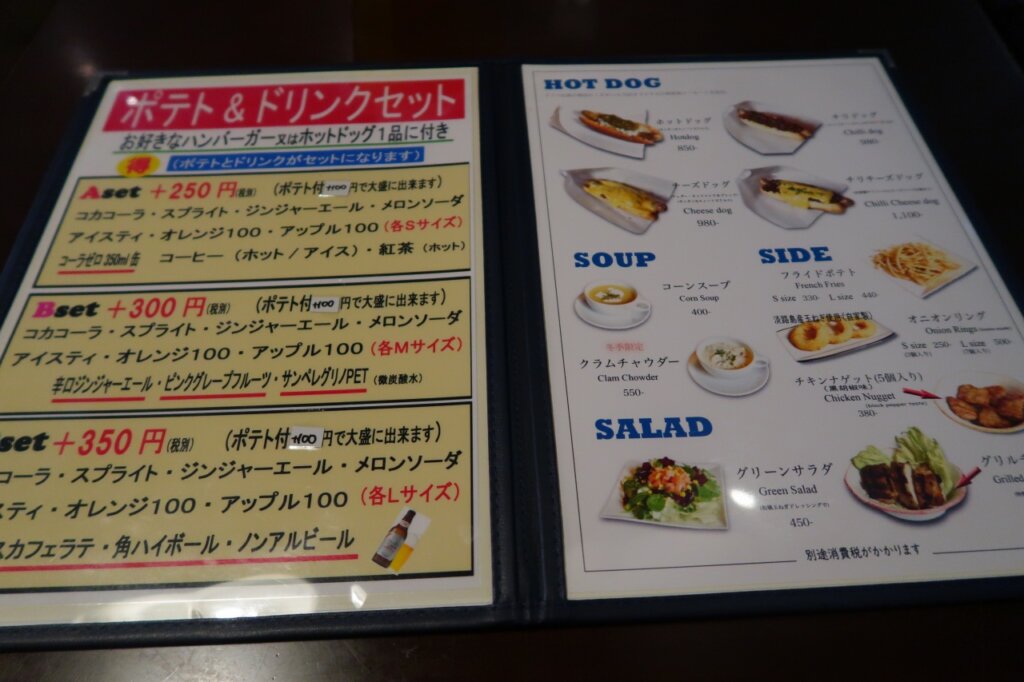 ポテト&ドリンクセット
お好きなハンバーガー又はホットドッグ1品に付き
得 (ポテトとドリンクがセットになります)
Aset +250円(税別) (ポテト付+100円で大盛に出来ます)
コカコーラ・スプライト・ジンジャーエール・メロンソーダ
アイスティ・オレンジ100・アップル100(各Sサイズ)
コーラゼロ350ml缶 コーヒー(ホット/アイス)・紅茶(ホット)
Bset +300円(税別) (ポテト付+100円で大盛に出来ます)
コカコーラ・スプライト・ジンジャーエール・メロンソーダ
アイスティ・オレンジ100・アップル100(各Mサイズ)
辛口ジンジャーエール・ピンクグレープフルーツ・サンペレグリノPET(微炭酸水)
set +350円(税別) (ポテト付+100円で大盛に出来ます)
コーラ・スプライト・ジンジャーエール・メロンソーダ
スティ・オレンジ100・アップル100(各Lサイズ)
スカフェラテ・角ハイボール・ノンアルビール
HOT DOG
ホットドッグ
Hotdog
850-
チリドッグ
Chilli dog
980-
チーズドッグ
Cheese dog
980-
チリチーズドッグ
Chilli Cheese dog
1,100-
SOUP
コーンスープ
Corn Soup
400-
冬季限定
クラムチャウダー
Clam Chowder
550-
SIDE
フライドポテト
French Fries
S size 330- L size 440-
淡路島産玉ねぎ使用(自家製)
オニオンリング
Onion Rings
S size 250- L size 500-
チキンナゲット(5個入り)
(黒胡椒味)
Chicken Nugget
(black pepper taste)
380-
SALAD
グリーンサラダ
Green Salad
450-
グリルチ
Grilled
別途消費税がかかります